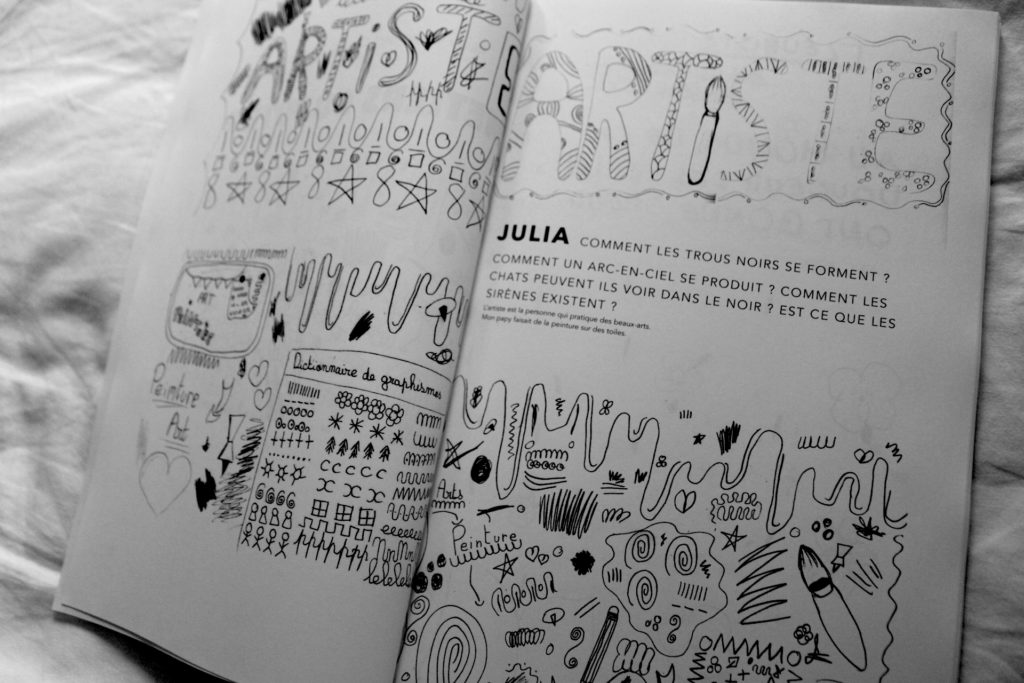 ARTiST
ART
Peinture
Art
Dictionnaire de graphismes
ARTiSTE
JULIA COMMENT LES TROUS NOIRS SE FORMENT ?
COMMENT UN ARC-EN-CIEL SE PRODUIT ? COMMENT LES
CHATS PEUVENT ILS VOIR DANS LE NOIR ? EST CE QUE LES
SIRÈNES EXISTENT ?
L'artiste est la personne qui pratique des beaux-arts.
Mon papy faisait de la peinture sur des toiles.
Arts
Peinture